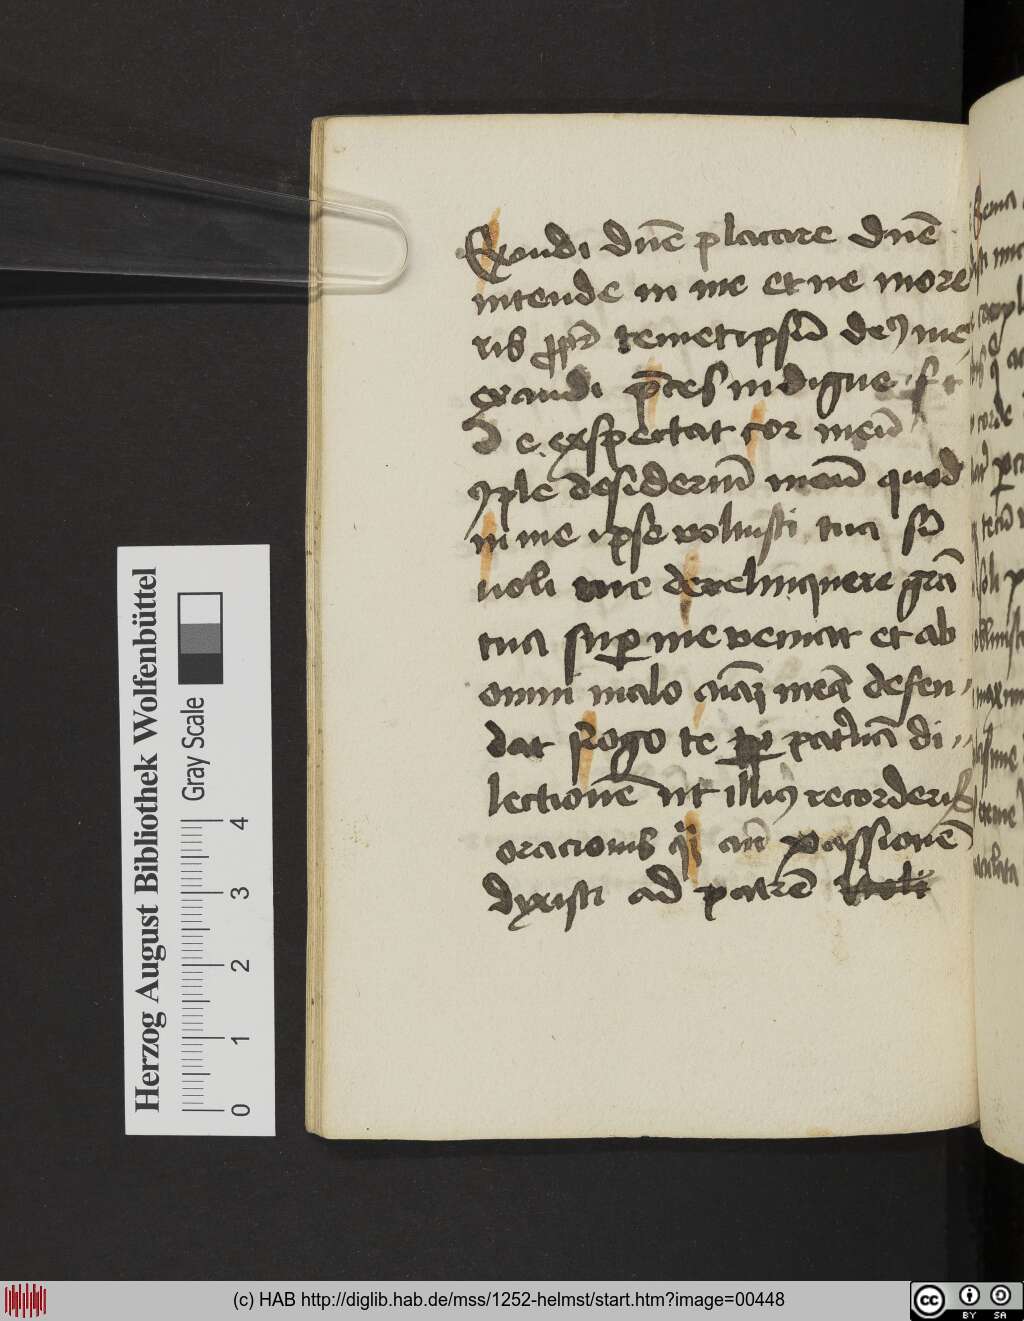 Exoudi dn̄e placare dn̄e
intende in me et ne more
ris ꝓpt̄ temetipsū deꝰ me
exaudi p̄ces indigne
D e exspectat cor meū
Iple desideriū meū quod
in me ipse voluisti tua sū
noli me derelinquere grā
tua suꝑ me veniat et ab
omni malo aīaꝫ meā defen
dat Rogo te pat̄nā di
lectionē ut illiꝰ recorderis
oracionis qͣ an̄ passionē
dyxisti ad patrē
Herzog August Bibliothek Wolfenbüttel
Gray Scale
0 1 2 3 4
(c) HAB http://diglib.hab.de/mss/1252-helmst/start.htm?image=00448
cc BY SA